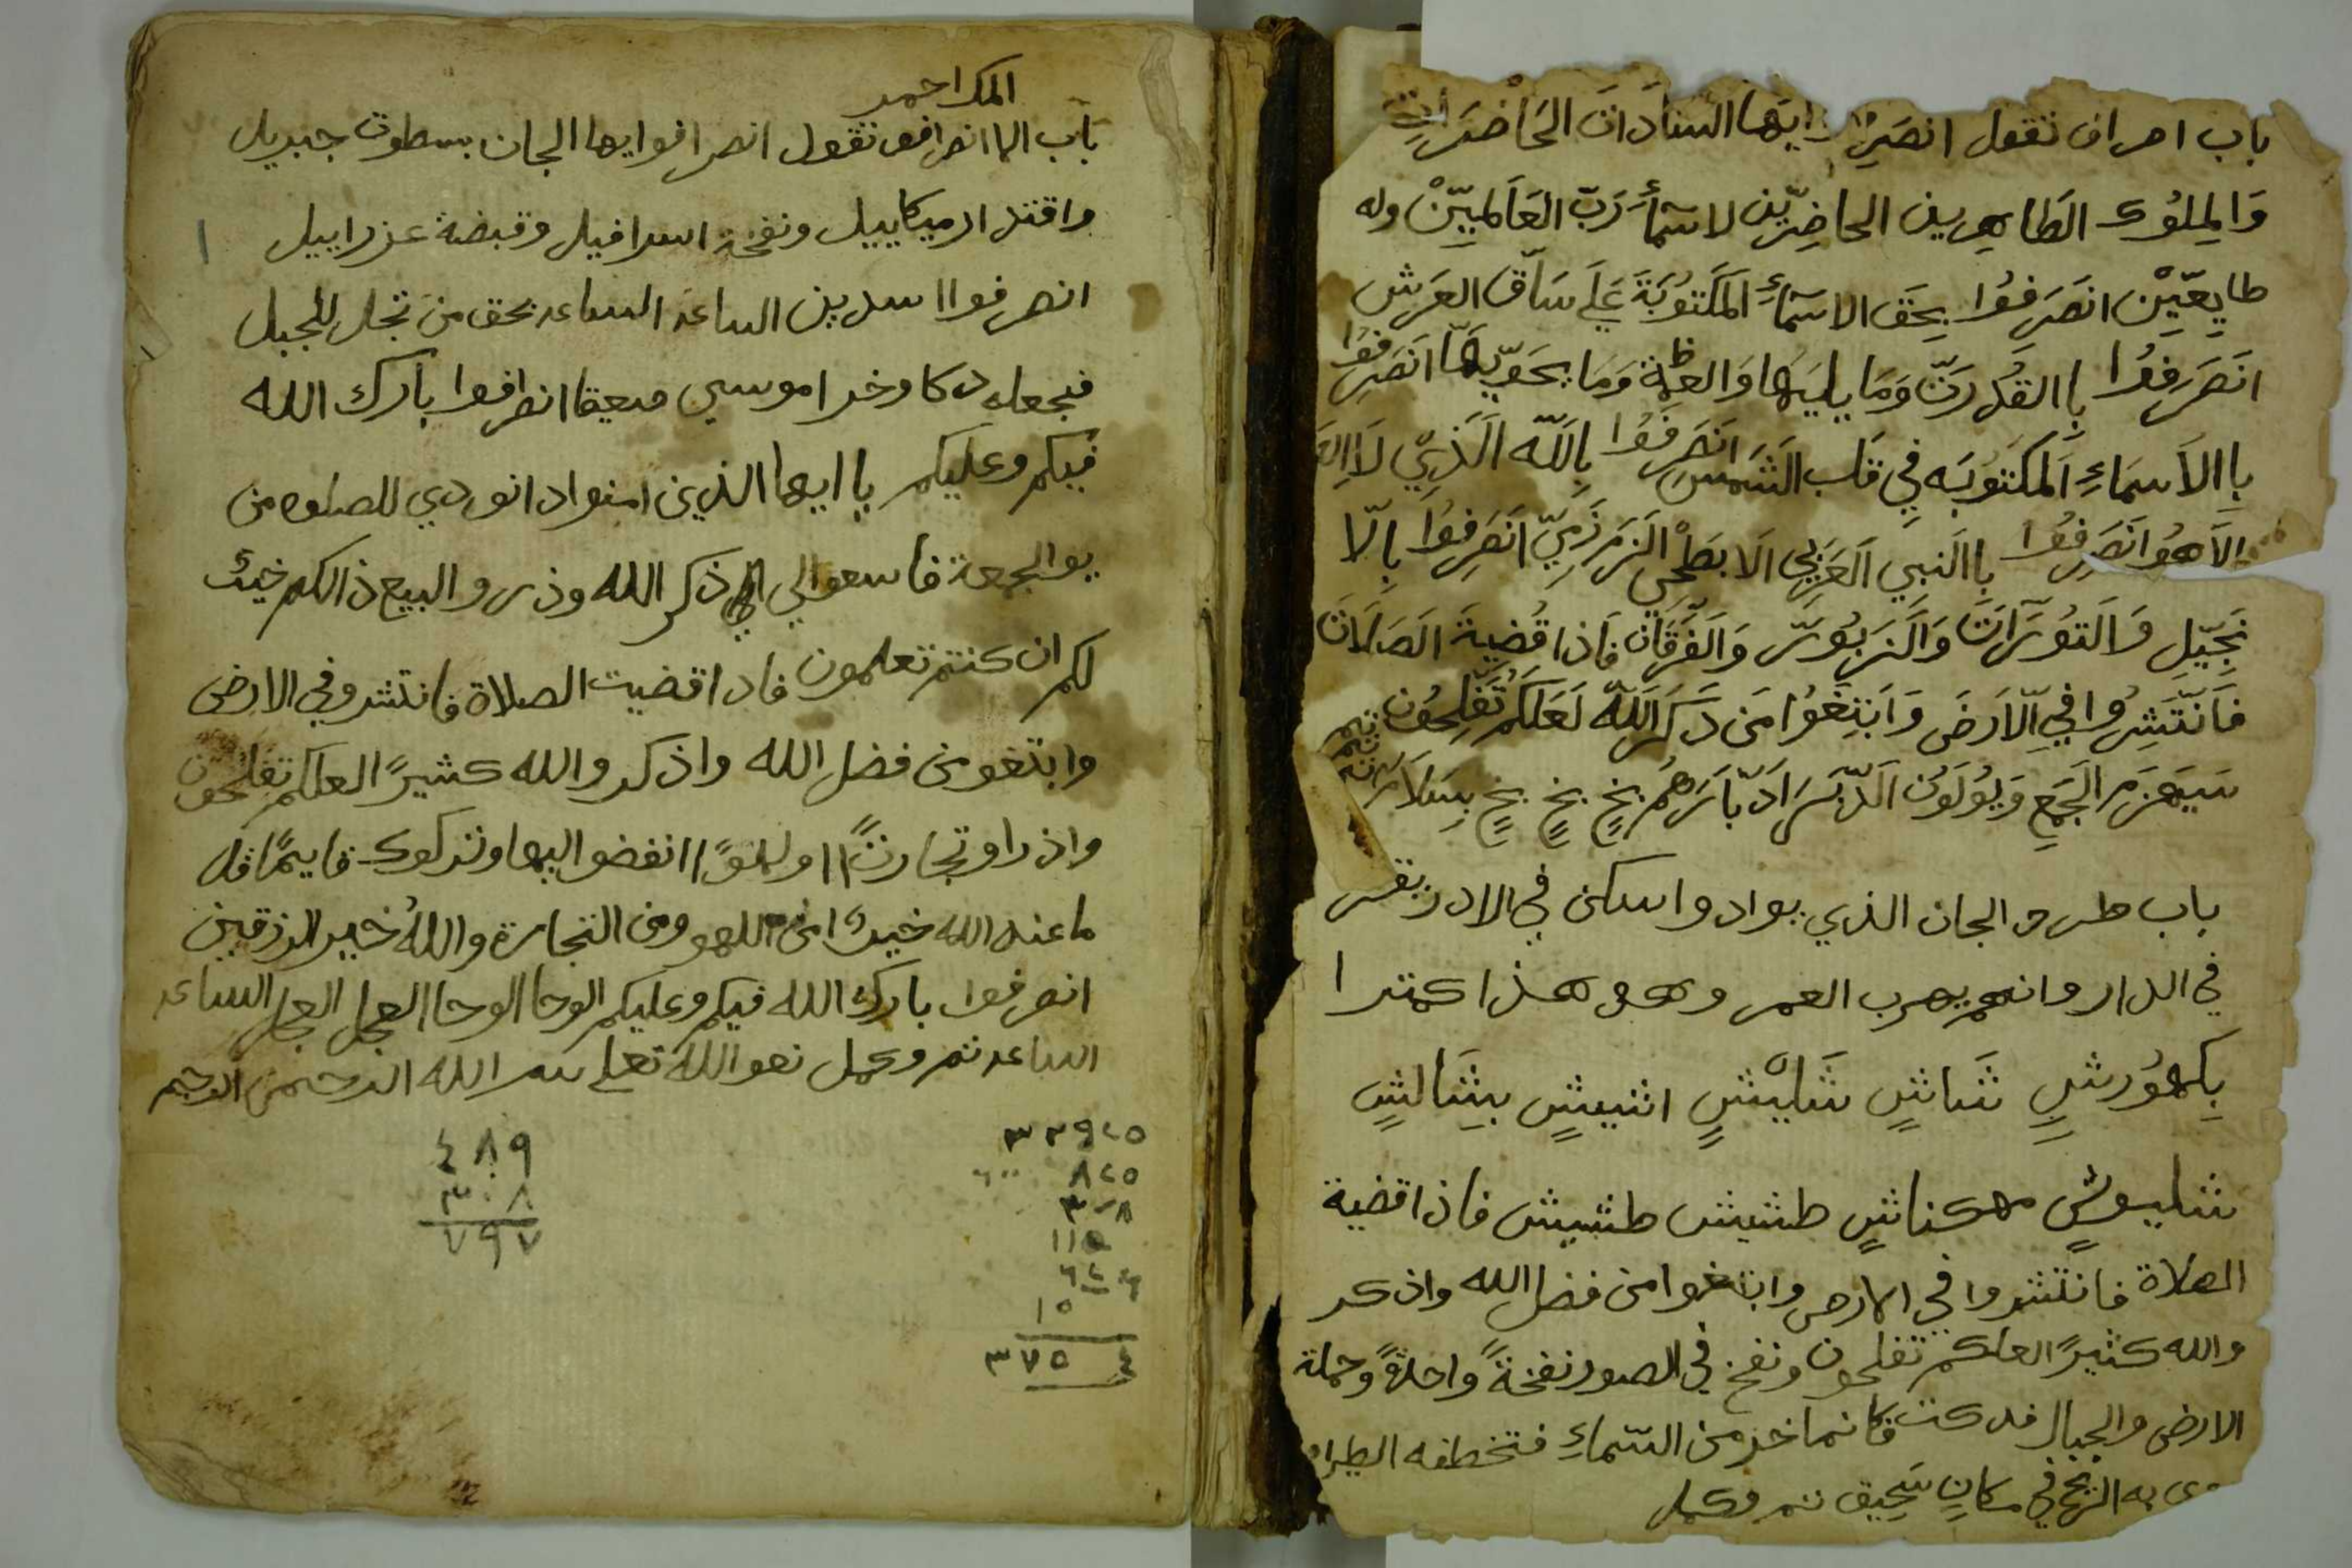 باب اصراف تقول انصَرِفوا ايَها السَادَاتَ الحَاضَرَات
وَالِملُوك الطَاهِرين الحاضِرّين لاسمَأ رَبّ العَالَمِيّنْ وله
طايِعّيْن انصَرِفوُا بِحَق الاسمَاءِ المَكَتوُبَةَ عَلَى سَاَق العَرَش
انَصَرِفُوا بِاالقُدرَتّ وَمَا يليَها وَالعظمة وَمَا يحَويّهَا انَصَرِفُوا
بِاالاَسَماءِ اَلمكَتوُبَه فيِ قلب الشَمسِ انَصَرفُوا بِاللّه الَذِيْ لاَاِله
الاَهُو انَصَرِفُوا بِاالَنبيِ الَعَرَبيِ الَابطَحْي الَزمزَمِيّ انَصَرِفوُا بِالّا
نجِيّلِ وَالَتوُرَاَتَ وَالَزبوُرَ وَالَفُرَقَانَ فَاذا قُضيةَ الصَلاَتَ
فَانَّتَشِرُوا فيِ الّاَرَضَ وَابَتِغَوُا مَن ذَكَرَ اللّه لَعَلَكُم تُفَلِحُون
ثم ثم ثم
سَيهَزمَ الجَمَعِ وَيُوُلَوُن الَدّبرَ ادَبّاَرَهُم بخٍ بخٍ بخٍ بِسَلاَم
باب طرد الجان الذي يواد واسكن في الادربقس
في الدار وانهم يهرب العمر وهو هذا كمترا
بِكهوُرشٍ شَاشٍ شَليْشٍ اشيشٍ بِشَالشٍ
شليوشٍ مهكناشٍ طشيش طشيش فاذا قضية
الصلاة فانتشروا في الارض وابتغوا من فضل الله واذكر
والله كثيرًا لعلكم تفلحون ونفخ في الصور نفخةً واحدةً وحملة
الارض والجبال فدكت فكانما خر من السّماءِ فتخطفه الطير او
وى به الريحُ في مكانٍ سَحِيق تم وكمل
المك احمر
باب الاانصراف تقول انصرافوا ايها الجان بسطوت جبريل
واقتدار ميكاييل ونفخة اسرافيل وقبضة عزراييل
انصرفوا اسدين الساعه الساعه بحق من تجلى للجبل
فجعله دكا وخرا موسي صعيقا انصرافوا بارك الله
فيكم وعليكم ياايها الذين امنوا اذا نودي للصلوه من
يوالجمعة فاسعوا الي ذكر الله وذر والبيع ذالكم خيرٌ
لكم ان كنتم تعلمون فاذا قضيت الصلاة فانتشرو في الارض
وابتغو من فضل الله واذكر والله كثيرًا لعلكم تفلحون
واذ راو تجارتًا او لهوًا انفضو اليها وتركوك قايمًا قل
ما عند الله خيرٌ امن اللهو ومن التجارة واللهُ خير الرزقين
انصرفوا بارك الله فيكم وعليكم الوحا الوحا العجل العجل الساعه
الساعه تم وكمل نعو الله تعلى بسم الله الرحمن الرحيم
٤٨٩
٣٠٨
٧٩٧
٣٣٩٢٥
٨٢٥ ٦٠٠
٣٢٨
١١٥
٦٢٤
١٥
٣٧٥ ٤